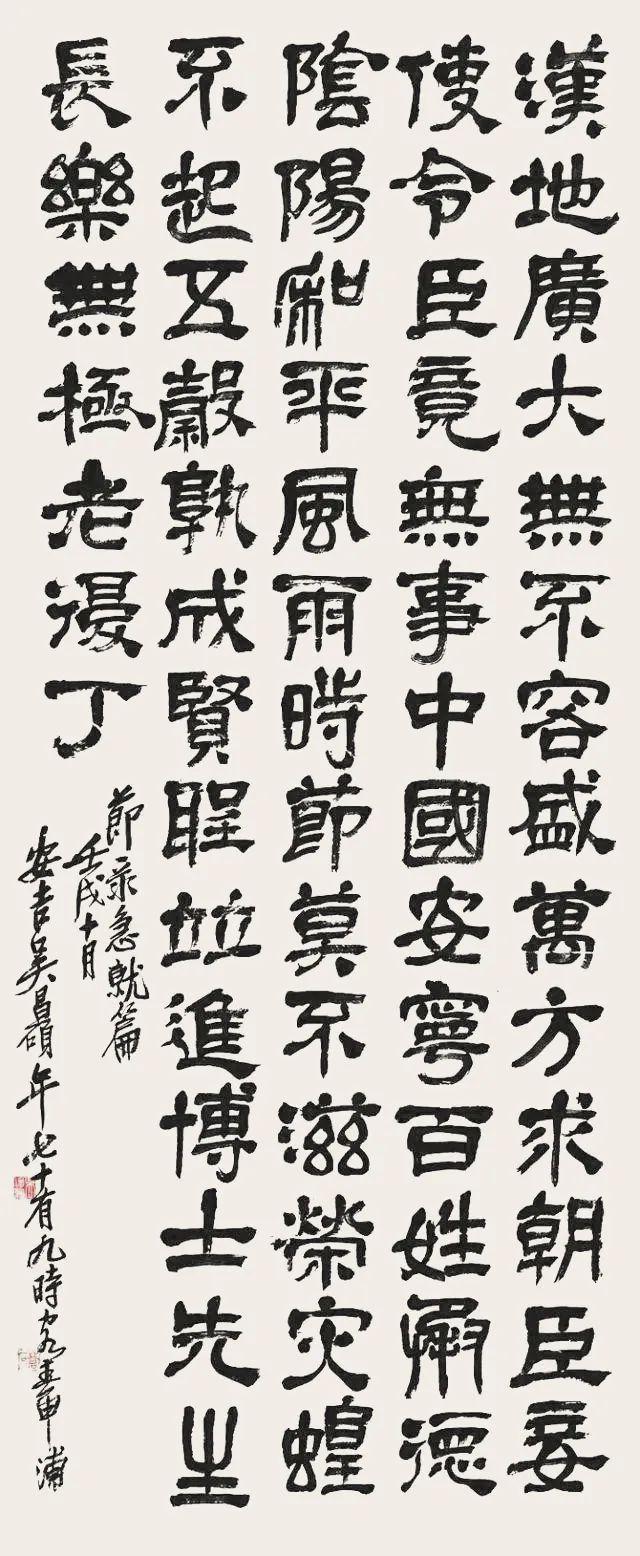 漢地廣大無不容盛萬方求朝臣妾
使令臣竟無事中國安寧百姓承德
陰陽和平風雨時節莫不滋榮灾蝗
不起五穀孰成賢聖竝進博士先生
長樂無極老復丁
節录急就篇
壬戌十月
安吉吳昌碩年七十有九時客滬